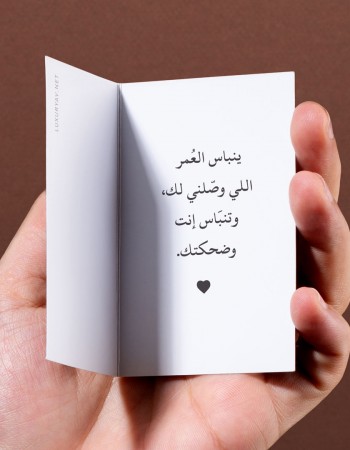 ينباس العُمر
اللي وصّلني لك،
وتنبَاس إنت
وضحكتك.
LUXURYBY.NET